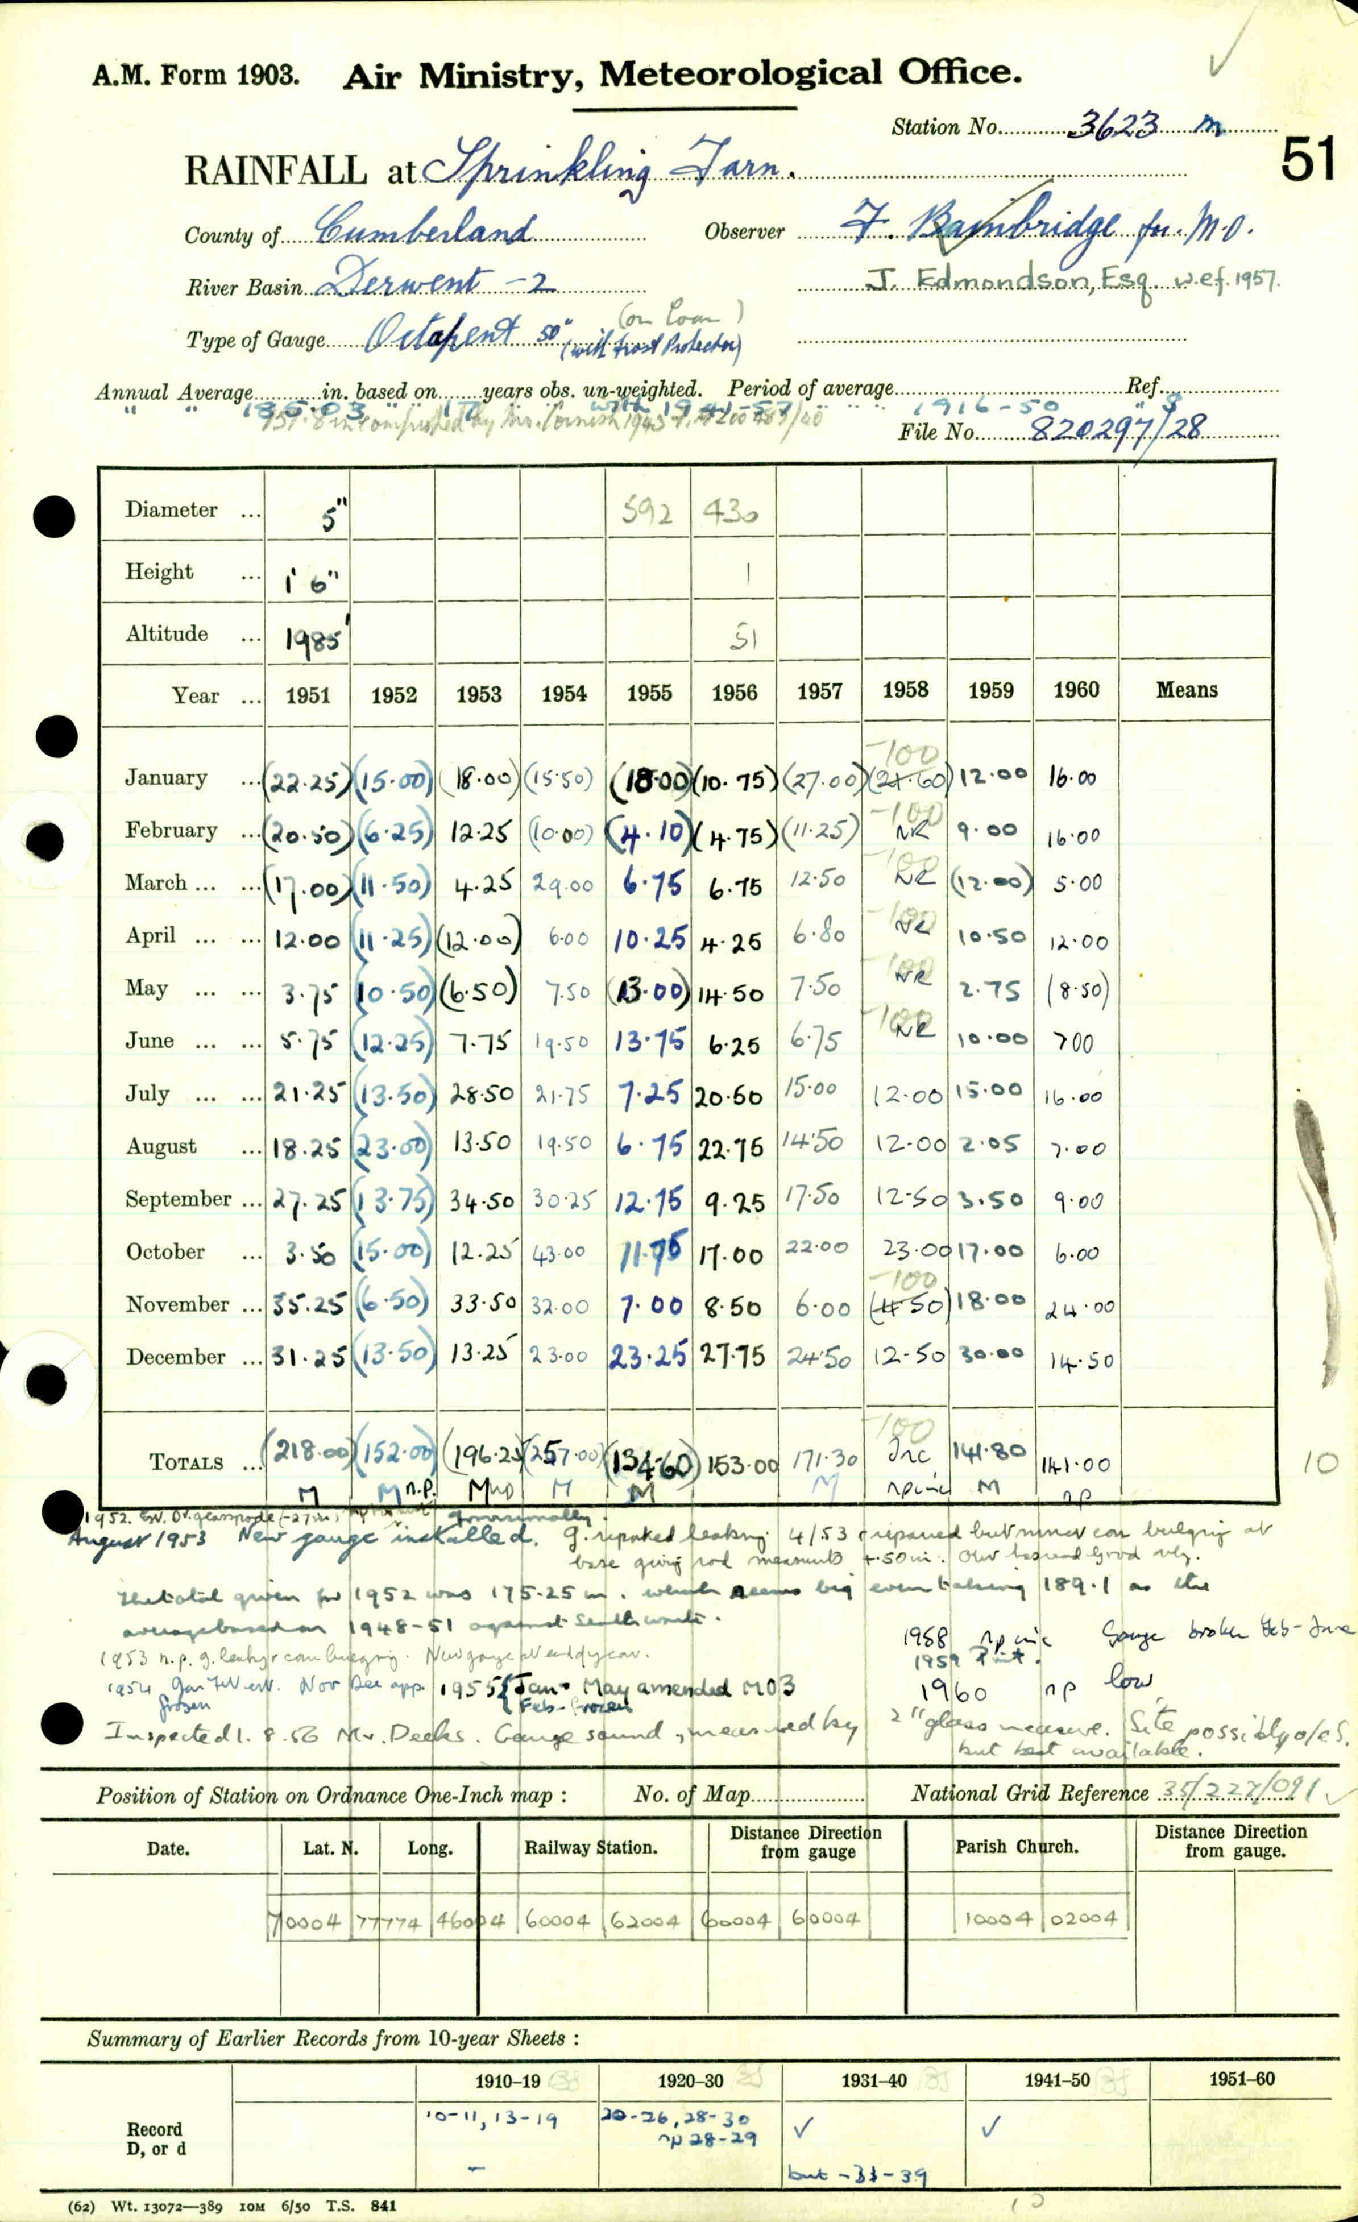 A.M. Form 1903. Air Ministry, Meteorological Office.
Station No. 3623 m
51
RAINFALL at Sprinkling Tarn.
County of Cumberland Observer F. Bainbridge for M.O.
River Basin Derwent -2 J. Edmondson, Esq. w.e.f. 1957.
(on loan)
Type of Gauge Octapent 50" (with frost Protector)
Annual Average in. based on years obs. un-weighted. Period of average Ref.
" " 185.03 " " 17 " " with 1941-57 " " " 1916-50 " S
File No. 820297/28
Diameter ... 5" 592 430
Height ... 1' 6" 1
Altitude ... 1985' 51
Year ... 1951 1952 1953 1954 1955 1956 1957 1958 1959 1960 Means
January ... (22.25) (15.00) (18.00) (15.50) (18.00) (10.75) (27.00) -100 (21.60) 12.00 16.00
February ... (20.50) (6.25) 12.25 (10.00) (4.10) (4.75) (11.25) -100 NR 9.00 16.00
March ... ... (17.00) (11.50) 4.25 29.00 6.75 6.75 12.50 -100 NR (12.00) 5.00
April ... ... 12.00 (11.25) (12.00) 6.00 10.25 4.25 6.80 -100 NR 10.50 12.00
May ... ... 3.75 (10.50) (6.50) 7.50 (13.00) 14.50 7.50 -100 NR 2.75 (8.50)
June ... ... 5.75 (12.25) 7.75 19.50 13.75 6.25 6.75 -100 NR 10.00 7.00
July ... ... 21.25 (13.50) 28.50 21.75 7.25 20.50 15.00 12.00 15.00 16.00
August ... 18.25 (23.00) 13.50 19.50 6.75 22.75 14.50 12.00 2.05 7.00
September ... 27.25 (13.75) 34.50 30.25 12.75 9.25 17.50 12.50 3.50 9.00
October ... 3.50 (15.00) 12.25 43.00 11.75 17.00 22.00 23.00 17.00 6.00
November ... 35.25 (6.50) 33.50 32.00 7.00 8.50 6.00 -100 (4.50) 18.00 24.00
December ... 31.25 (13.50) 13.25 23.00 23.25 27.75 24.50 12.50 30.00 14.50
TOTALS ... (218.00) (152.00) (196.25) (257.00) (134.60) 153.00 171.30 -100 Inc 141.80 141.00
10
M M n.p. M M M M np inc M np
August 1953 New gauge installed. g. repaired leaking 4/53 & repaired but inner can bulging at
base giving rod measurements +.50 in.
The total given for 1952 was 175.25 in. which seems big even taking 189.1 as the
average based on 1948-51 against Seathwaite.
1958 np inc Gauge broken Feb-June
1953 n.p. g. leaky & can bulging. New gauge
1959
1954 Jan Feb est. Nov Dec app. 1955 { Jan - May amended MO3
frozen Feb - frozen
1960 np low
Inspected 1.8.56 Mr. Deeks. Gauge sound, measured by 2" glass measure. Site possibly o/es.
but best available.
Position of Station on Ordnance One-Inch map : No. of Map National Grid Reference 35/227/091
Date. Lat. N. Long. Railway Station. Distance Direction from gauge Parish Church. Distance Direction from gauge.
70004 77774 46004 60004 62004 60004 60004 10004 02004
Summary of Earlier Records from 10-year Sheets :
1910–19 1920–30 1931–40 1941–50 1951–60
Record D, or d
10-11, 13-19 20-26, 28-30 ✓ ✓
np 28-29
– but -33-39
(62) Wt. 13072—389 10M 6/50 T.S. 841